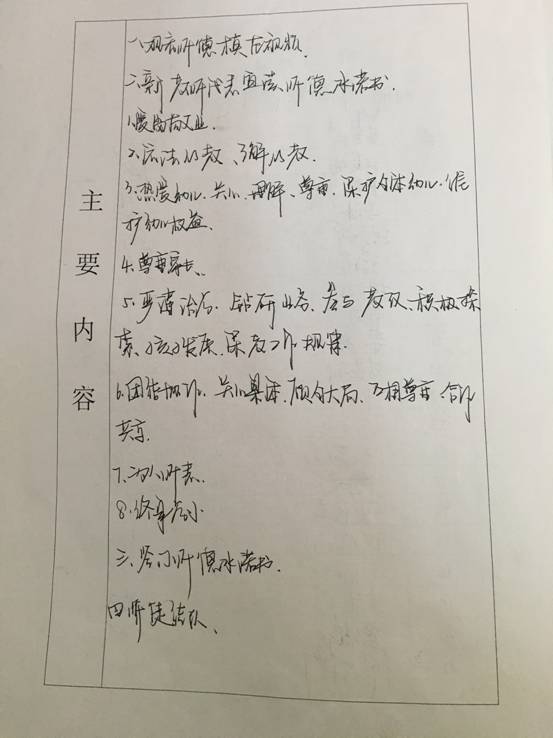 主要内容
一、观看师德模范视频.
二、新教师代表宣读师德承诺书.
1.爱岗敬业.
2.依法从教、廉从教.
3.热爱幼儿.关心、理解、尊重.保护全体幼儿.维
护幼儿权益.
4.尊重家长、
5.严谨治学.钻研业务.参与教研.积极探
索、幼儿发展、保教工作规律.
6.团结协作.关心集体、顾全大局、互相尊重、合作
共享.
7.为人师表.
8.终身学习
三、签订师德承诺书.
四师徒结队、